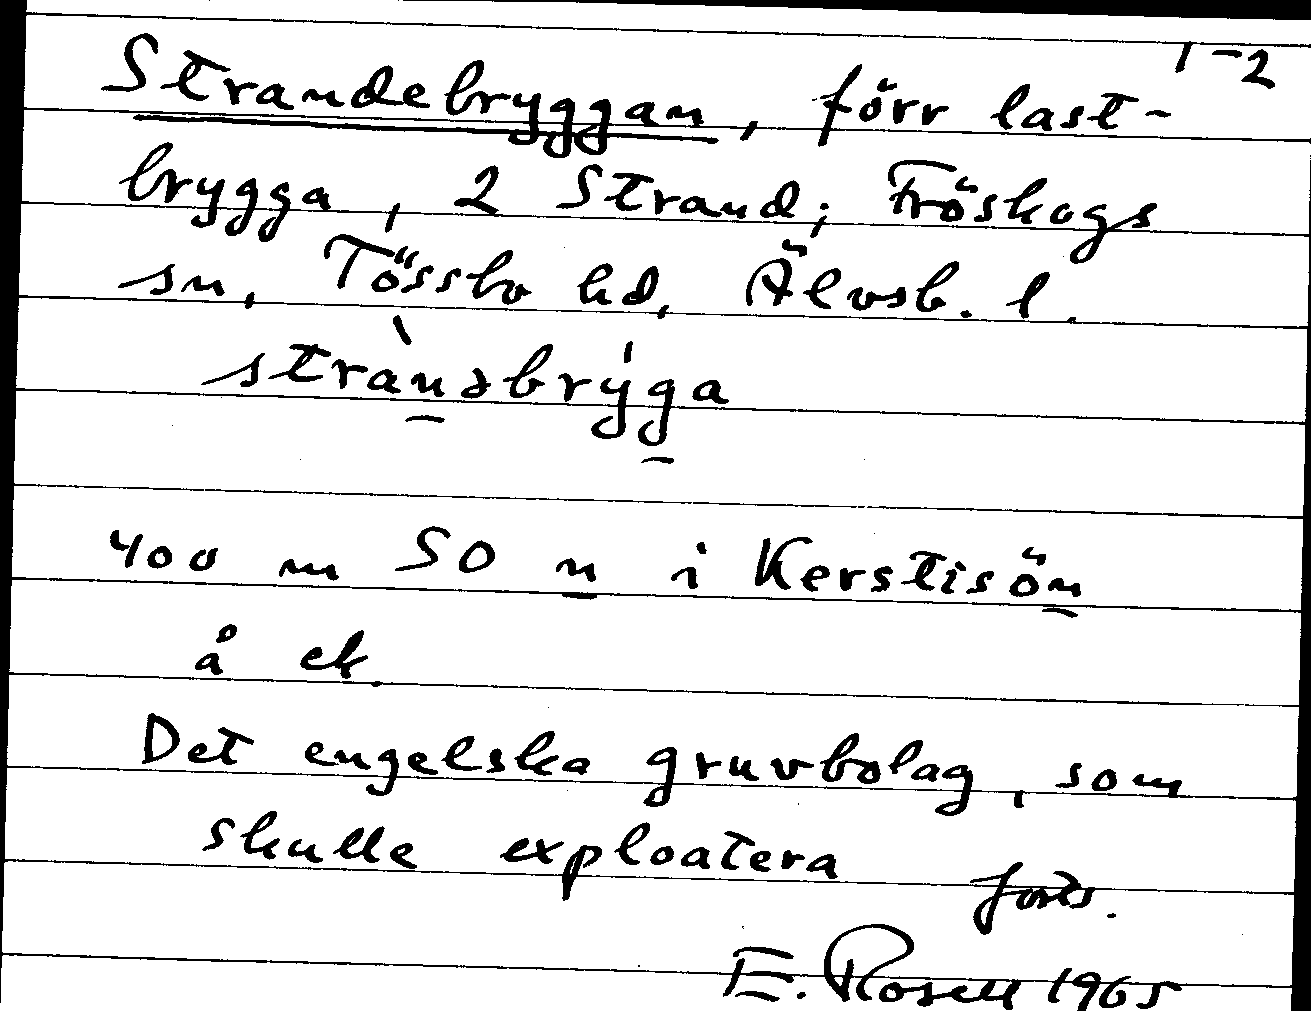 1-2
Strandebryggan, förr last-
brygga, 2 Strand; Fröskogs
sn, Tössbo hd, Älvsb. l.
strànəbrýga
400 m SO n i Kerstisön
å ek.
Det engelska gruvbolag, som
skulle exploatera forts.
E. Rosell 1965